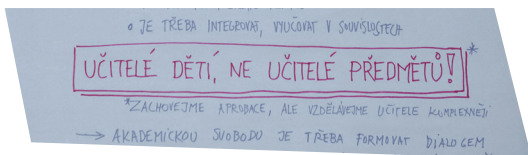 JE TŘEBA INTEGROVAT, VYUČOVAT V SOUVISLOSTECH
UČITELÉ DĚTÍ, NE UČITELÉ PŘEDMĚTŮ! *
*ZACHOVEJME APROBACE, ALE VZDĚLÁVEJME UČITELE KOMPLEXNĚJI
→ AKADEMICKOU SVOBODU JE TŘEBA FORMOVAT DIALOGEM